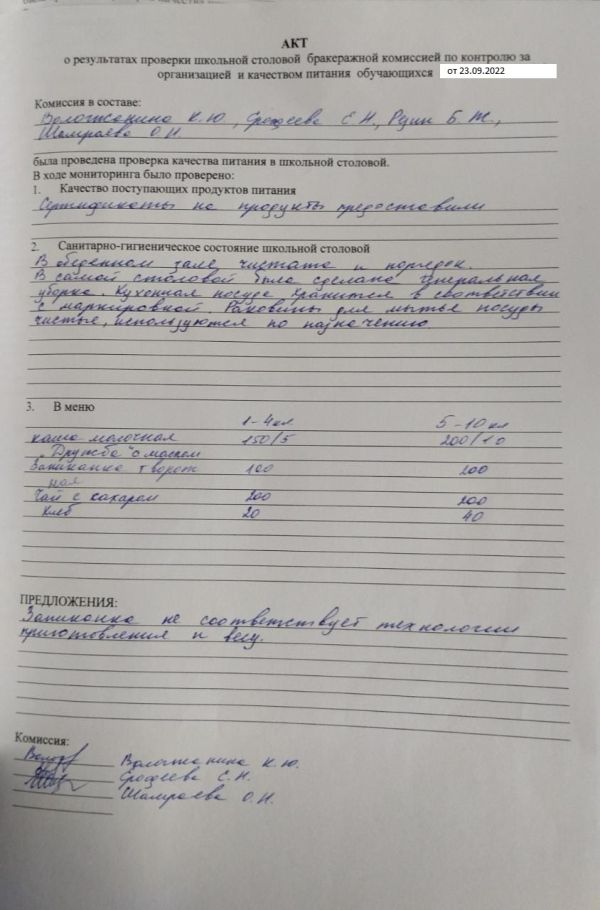 АКТ
о результатах проверки школьной столовой бракеражной комиссией по контролю за
организацией и качеством питания обучающихся от 23.09.2022
Комиссия в составе:
Вологжанина К.Ю., Ерофеева С.Н., Рзин Б.Ж.,
Шамраева О.Н.
была проведена проверка качества питания в школьной столовой.
В ходе мониторинга было проверено:
1. Качество поступающих продуктов питания
Сертификаты на продукты предоставили
2. Санитарно-гигиеническое состояние школьной столовой
В обеденном зале чистата и порядок.
В самой столовой была сделана генеральная
уборка. Кухонная посуда хранится в соответствии
с маркировкой. Раковины для мытья посуды
чистые, используются по назначению.
3. В меню
1-4 кл 5-10 кл
каша молочная 150/5 200/10
"Дружба" с маслом
Запиканка творож 100 200
ная
Чай с сахаром 200 200
Хлеб 20 40
ПРЕДЛОЖЕНИЯ:
Запиканка не соответствует технологии
приготовления и весу.
Комиссия:
Вологжанина К.Ю.
Ерофеева С.Н.
Шамраева О.Н.